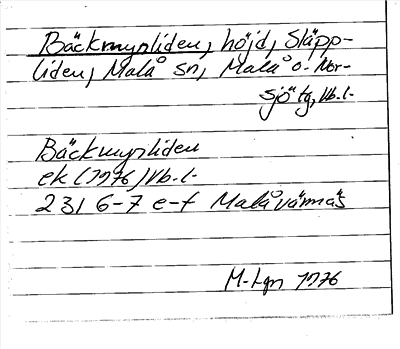 Bäckmyrliden, höjd, Släpp-
liden, Malå sn, Malå o. Nor-
sjö tg, Vb. l.
Bäckmyrliden
ek (1976) Vb. l.
231 6-7 e-f Malåvännäs
M-Lgn 1976